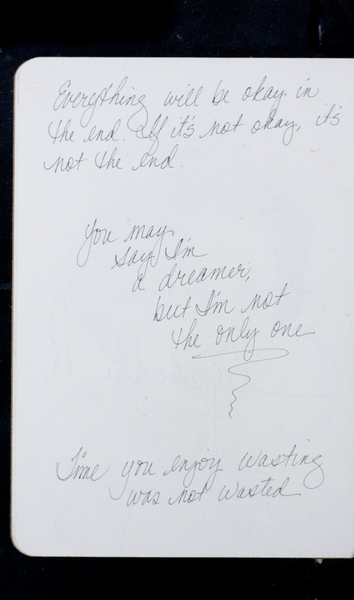 Everything will be okay in
the end. If it's not okay, it's
not the end.
You may
say I'm
a dreamer,
but I'm not
the only one
Time you enjoy wasting
was not wasted